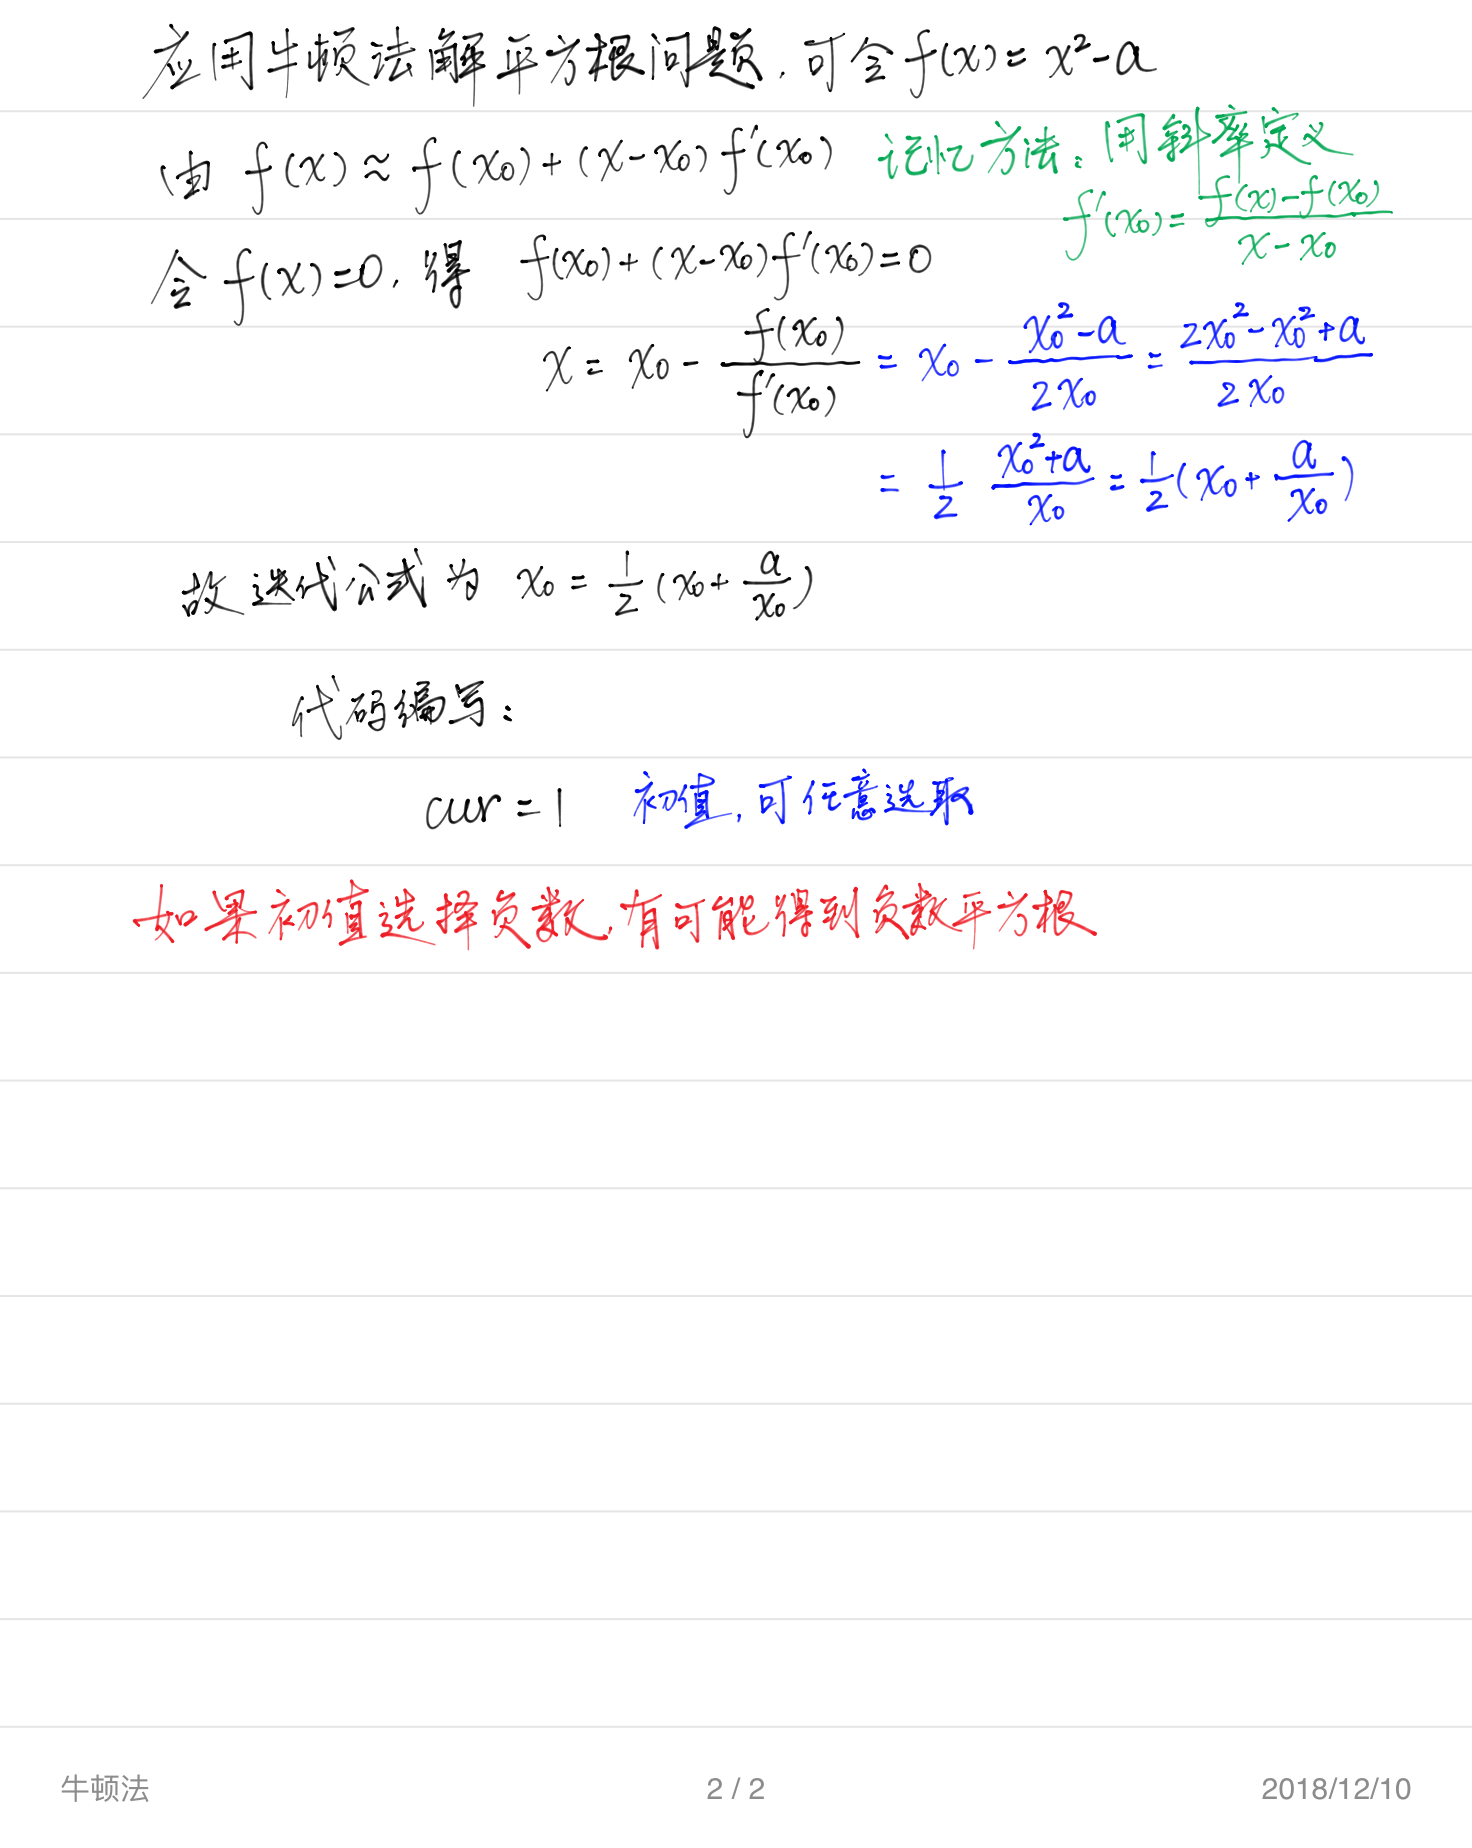 应用牛顿法解平方根问题，可令 f(x) = x² - a
由 f(x) ≈ f(x₀) + (x - x₀) f'(x₀) 记忆方法：用斜率定义
f'(x₀) = \frac{f(x) - f(x₀)}{x - x₀}
令 f(x) = 0，得 f(x₀) + (x - x₀) f'(x₀) = 0
x = x₀ - \frac{f(x₀)}{f'(x₀)} = x₀ - \frac{x₀² - a}{2x₀} = \frac{2x₀² - x₀² + a}{2x₀}
= \frac{1}{2} \frac{x₀² + a}{x₀} = \frac{1}{2}(x₀ + \frac{a}{x₀})
故迭代公式为 x₀ = \frac{1}{2}(x₀ + \frac{a}{x₀})
代码编写：
cur = 1 初值，可任意选取
如果初值选择负数，有可能得到负数平方根
牛顿法 2 / 2 2018/12/10